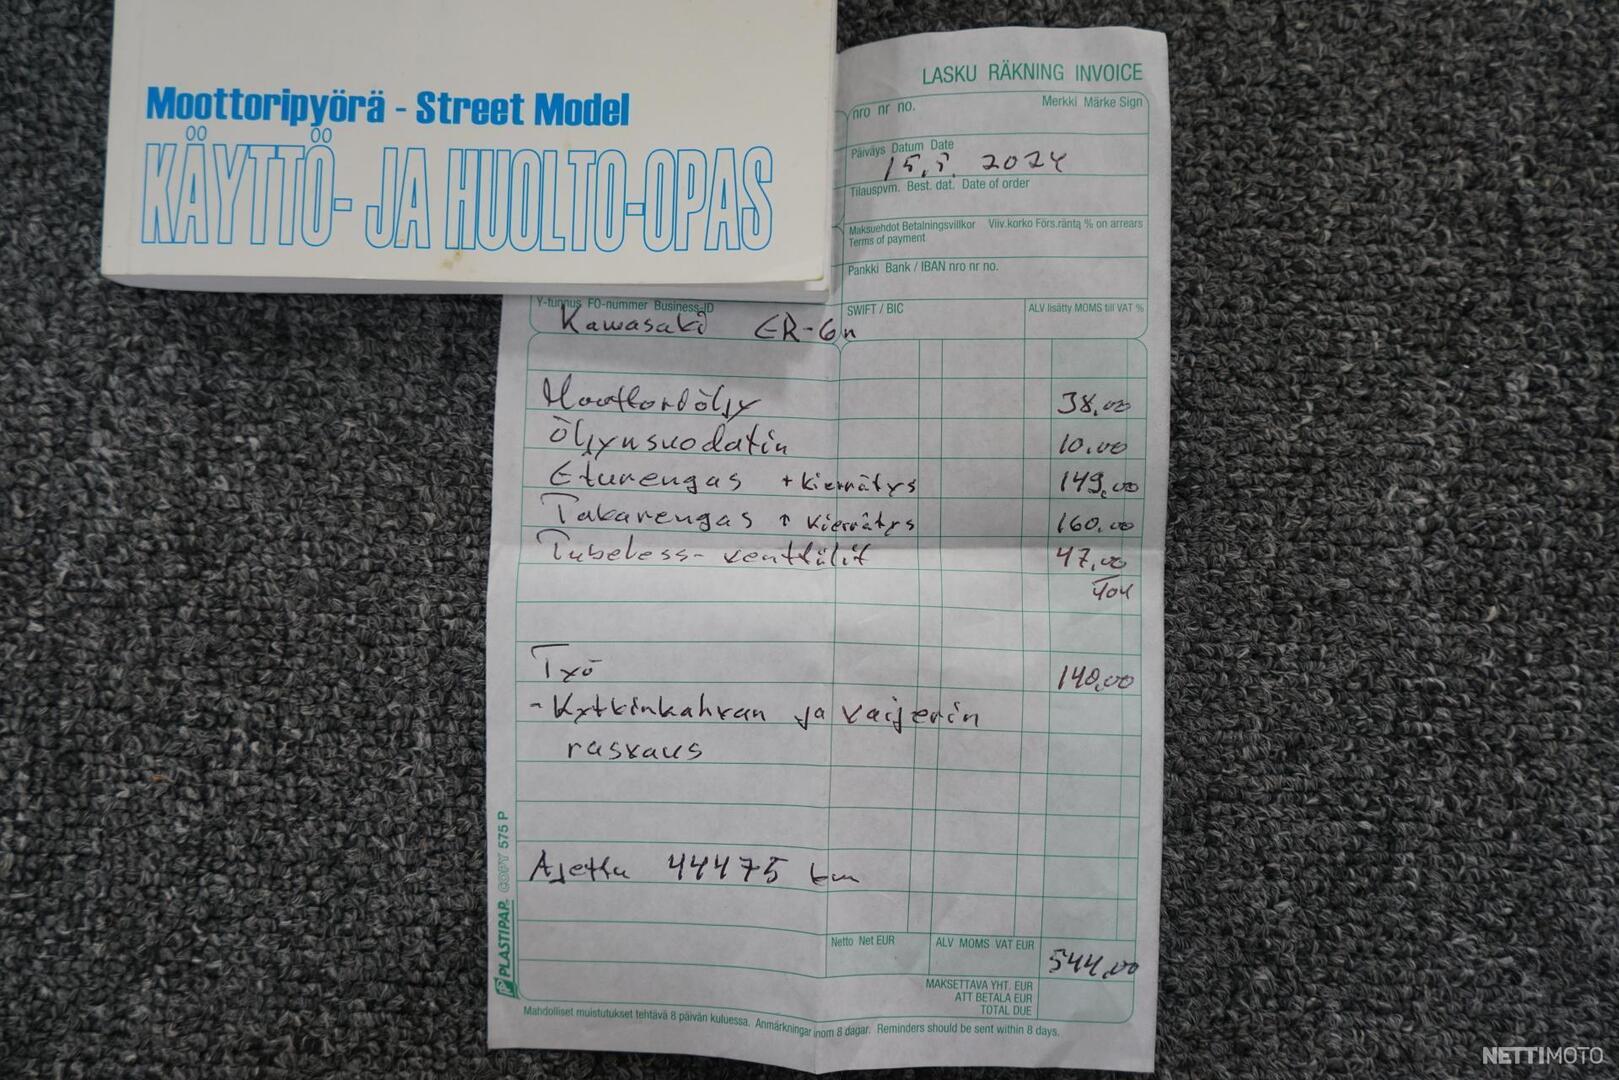 Moottoripyörä - Street Model
KÄYTTÖ- JA HUOLTO-OPAS
LASKU RÄKNING INVOICE
nro nr no.
Merkki Märke Sign
Päiväys Datum Date
15.5. 2024
Tilauspvm. Best. dat. Date of order
Maksuehdot Betalningsvillkor Viiv.korko Förs.ränta % on arrears
Terms of payment
Pankki Bank / IBAN nro nr no.
Y-tunnus FO-nummer Business-ID
SWIFT / BIC
ALV lisätty MOMS till VAT %
Kawasaki ER-6n
Moottoriöljy 38,00
Öljynsuodatin 10,00
Eturengas + kierrätys 149,00
Takarengas + kierrätys 160,00
Tubeless-venttiilit 47,00
404
Työ 140,00
- Kytkinkahvan ja vaijerin
rasvaus
Ajettu 44475 km
Netto Net EUR
ALV MOMS VAT EUR
544,00
MAKSETTAVA YHT. EUR
ATT BETALA EUR
TOTAL DUE
PLASTIPAP COPY 575 P
Mahdolliset muistutukset tehtävä 8 päivän kuluessa. Anmärkningar inom 8 dagar. Reminders should be sent within 8 days.
NETTIMOTO